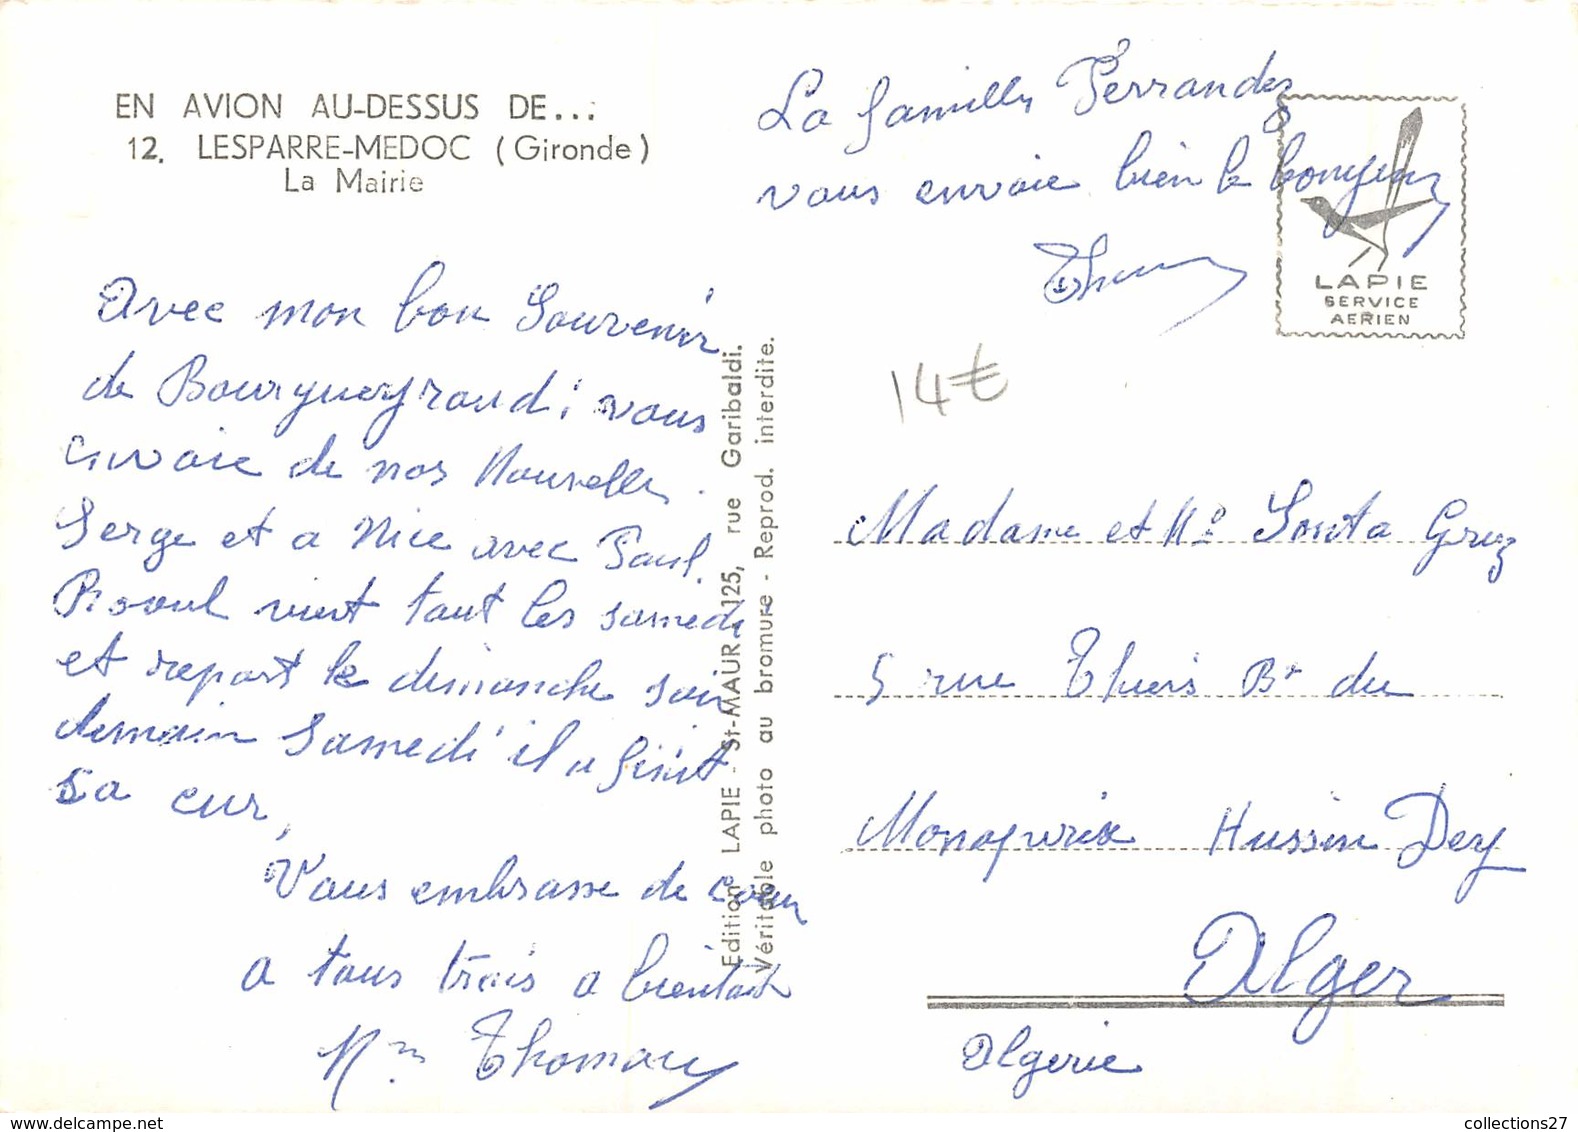 EN AVION AU-DESSUS DE...
12. LESPARRE-MEDOC (Gironde)
La Mairie
La famille Ferrandez
vous envoie bien le bonjour
14€
LAPIE
SERVICE
AERIEN
Avec mon bon Souvenir
de vous
envoie de nos Nouvelles.
Serge et a Nice avec Paul.
Raoul vient tout les samedi
et repart le dimanche soir
demain Samedi il a finit
sa cur,
Vous embrasse de coeur
a tous trois a bientot
Mm
Edition LAPIE - St-MAUR 125, rue Garibaldi.
Véritable photo au bromure - Reprod. interdite.
Madame et Mr Santa Cruz
5 rue Thiers Bt du
Monoprix Hussin Dey
Alger
Algerie
collections27